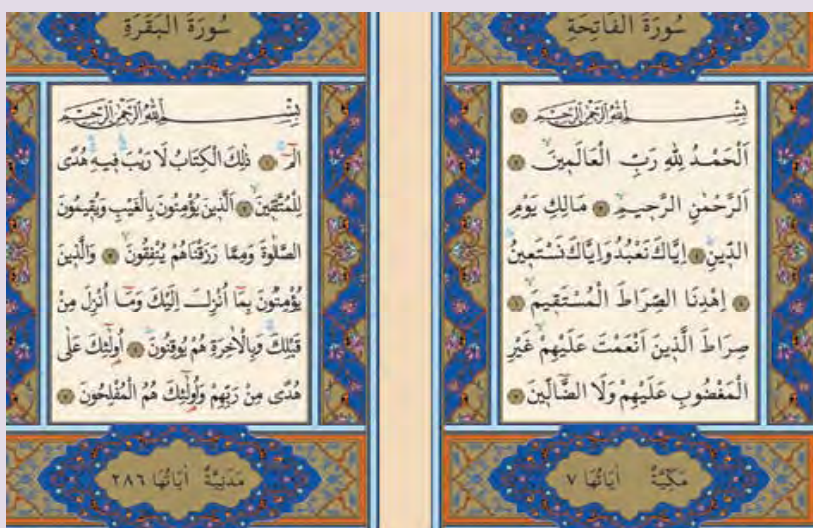 سُورَةُ الْفَاتِحَةِ
بِسْمِ اللهِ الرَّحْمٰنِ الرَّحِيمِ
اَلْحَمْدُ لِلّٰهِ رَبِّ الْعَالَمِينَ
اَلرَّحْمٰنِ الرَّحِيمِ مَالِكِ يَوْمِ
الدِّينِ اِيَّاكَ نَعْبُدُ وَاِيَّاكَ نَسْتَعِينُ
اِهْدِنَا الصِّرَاطَ الْمُسْتَقِيمَ
صِرَاطَ الَّذِينَ اَنْعَمْتَ عَلَيْهِمْ غَيْرِ
الْمَغْضُوبِ عَلَيْهِمْ وَلَا الضَّٓالِّينَ
مَكِّيَّةٌ اٰيَاتُهَا ٧
سُورَةُ الْبَقَرَةِ
بِسْمِ اللهِ الرَّحْمٰنِ الرَّحِيمِ
الٓمٓ ذٰلِكَ الْكِتَابُ لَا رَيْبَ فِيهِ هُدًى
لِلْمُتَّقِينَ اَلَّذِينَ يُؤْمِنُونَ بِالْغَيْبِ وَيُقِيمُونَ
الصَّلٰوةَ وَمِمَّا رَزَقْنَاهُمْ يُنْفِقُونَ وَالَّذِينَ
يُؤْمِنُونَ بِمَٓا اُنْزِلَ اِلَيْكَ وَمَٓا اُنْزِلَ مِنْ
قَبْلِكَ وَبِالْاٰخِرَةِ هُمْ يُوقِنُونَ اُولٰٓئِكَ عَلٰى
هُدًى مِنْ رَبِّهِمْ وَاُولٰٓئِكَ هُمُ الْمُفْلِحُونَ
مَدَنِيَّةٌ اٰيَاتُهَا ٢٨٦